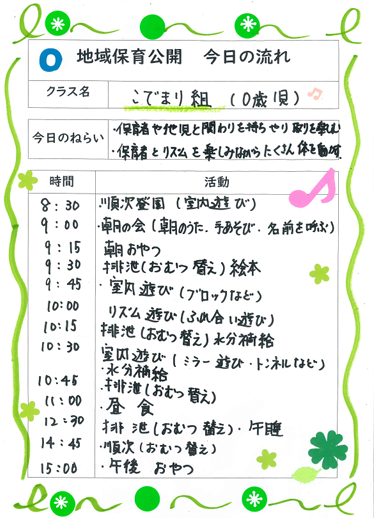 0 地域保育公開 今日の流れ
クラス名 こでまり組 (0歳児)
今日のねらい ・保育者や他児と関わりを持ちやり取りを楽しむ
・保育者とリズムを楽しみながらたくさん体を動かす
時間 活動
8:30 ・順次登園(室内遊び)
9:00 ・朝の会(朝のうた.手あそび.名前を呼ぶ)
9:15 朝おやつ
9:30 排泄(おむつ替え)絵本
9:45 ・室内遊び(ブロックなど)
10:00 リズム遊び(ふれ合い遊び)
10:15 排泄(おむつ替え)水分補給
10:30 室内遊び(ミラー遊び・トンネルなど)
・水分補給
10:45 ・排泄(おむつ替え)
11:00 ・昼食
12:30 排泄(おむつ替え)・午睡
14:45 ・順次(おむつ替え)
15:00 ・午後おやつ